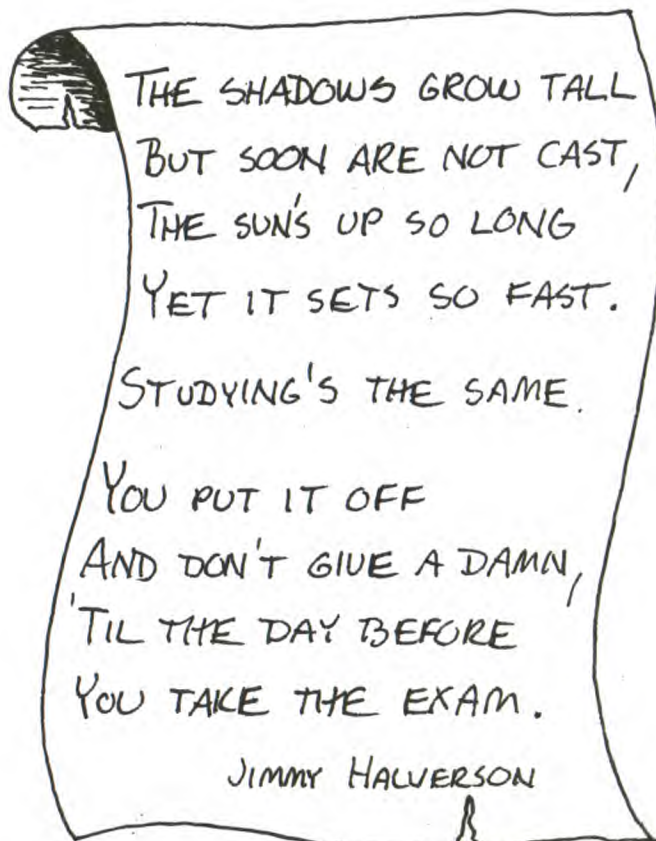 THE SHADOWS GROW TALL
BUT SOON ARE NOT CAST,
THE SUN'S UP SO LONG
YET IT SETS SO FAST.
STUDYING'S THE SAME.
YOU PUT IT OFF
AND DON'T GIVE A DAMN,
'TIL THE DAY BEFORE
YOU TAKE THE EXAM.
JIMMY HALVERSON